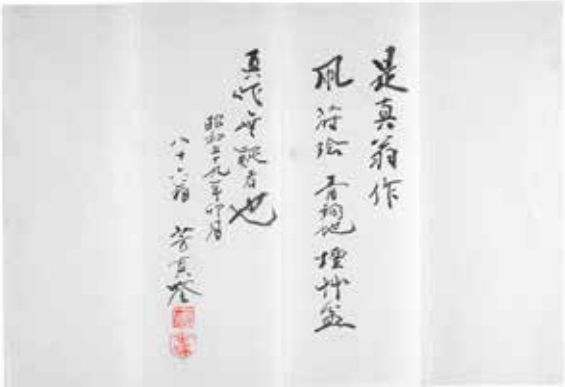 是真翁作
蒔絵 青銅地 煙艸盆
真作無疑者也
昭和五十九年卯月
八十六翁 芳真